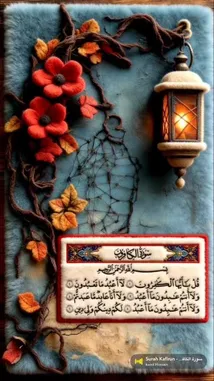 سورة الكافرون
بسم الله الرحمن الرحيم
قل يا أيها الكافرون ① لا أعبد ما تعبدون ②
ولا أنتم عابدون ما أعبد ③ ولا أنا عابد ما عبدتم ④
ولا أنتم عابدون ما أعبد ⑤ لكم دينكم ولي دين ⑥
Surah Kafirun - سورة الكاف...